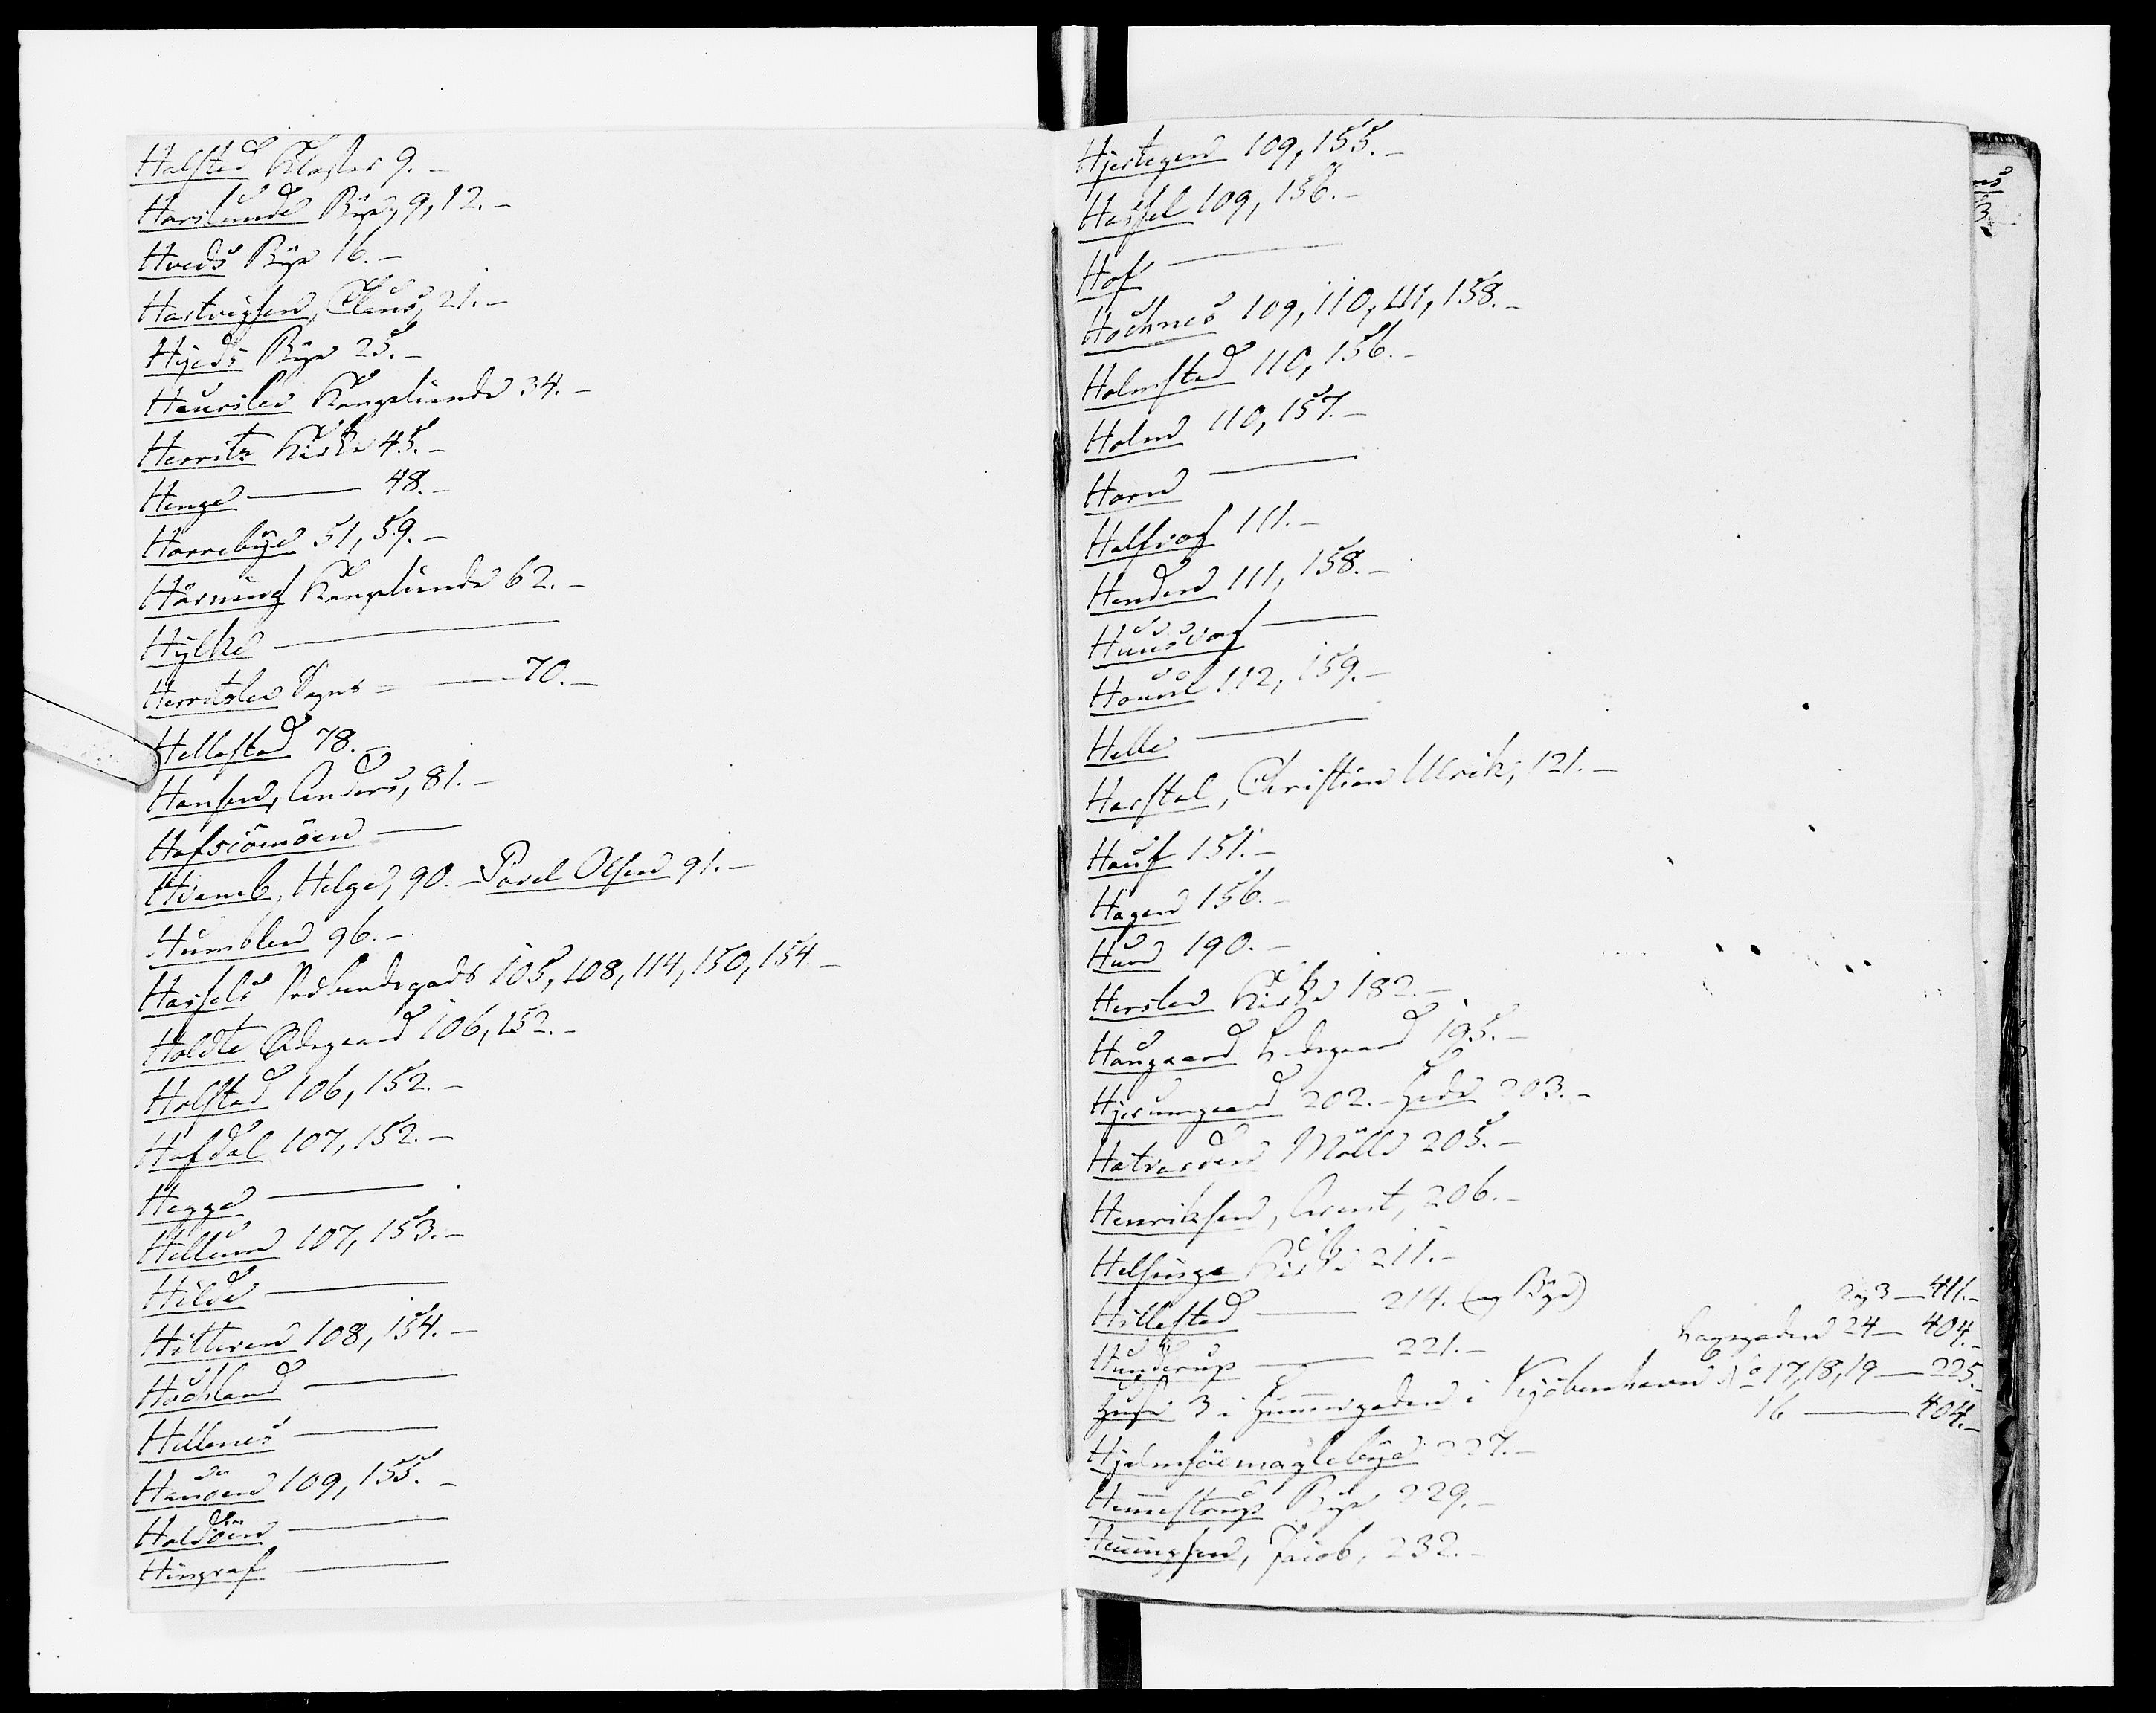 Halsted Kloster 9.-
Harslunde Bÿe, 9, 12.-
Hveds Bÿe 16.-
Hartvigsen, Claus, 21.-
Hÿeds Bÿe 25.-
Haurslev Kongetiende 34.-
Herrits Kirke 45.-
Henge — 48.-
Horrebÿe 51, 59.-
Hörning Kongetiende 62.-
Hÿlke —
Herritslev Sogns — 70.-
Hellested 78.-
Hansen, Anders, 81.-
Hafsiömöen —
Hvamb, Helge, 90.- Povel Olsen 91.-
Humblen 96.-
Hassels 105, 108, 114, 150, 154.-
Holdte Ödegaard 106, 152.-
Holstad 106, 152.-
Hofdal 107, 152.-
Hegge —
Hellum 107, 153.-
Hilde —
Hitteren 108, 154.-
Huchland —
Hillenes —
Hanöen 109, 155.-
Holdöen —
Hingraf —
Hjertegen 109, 155.-
Hassel 109, 156.-
Hof —
Hochnes 109, 110, 111, 158.-
Holmstad 110, 156.-
Holm 110, 157.-
Horn —
Halfvaf 111.-
Henden 111, 158.-
Huusvaf —
Houul 112, 159.-
Helle —
Harstal, Christian Ulrik, 121.-
Hauf 151.-
Hagen 156.-
Hund 190.-
Herslev Kirke 182.-
Haugaard Ladegaard 195.-
Hjerumgaard 202.- Hede 203.-
Hatvarden Mölle 205.-
Henriksen, Arent, 206.-
Helsinge Kirke 211.-
Hillested — 214. (og Bÿe)
2 og 3 — 411.-
Hunderup — 221.-
24 — 404.-
Huse 3 i Hummergaden i Kjöbenhavn No 17, 18, 19 — 225.-
16 — 404.-
Hjelmsöemaglebÿe 227.-
Hemestrup Bÿe 229.-
Henningsen, Jacob, 232.-